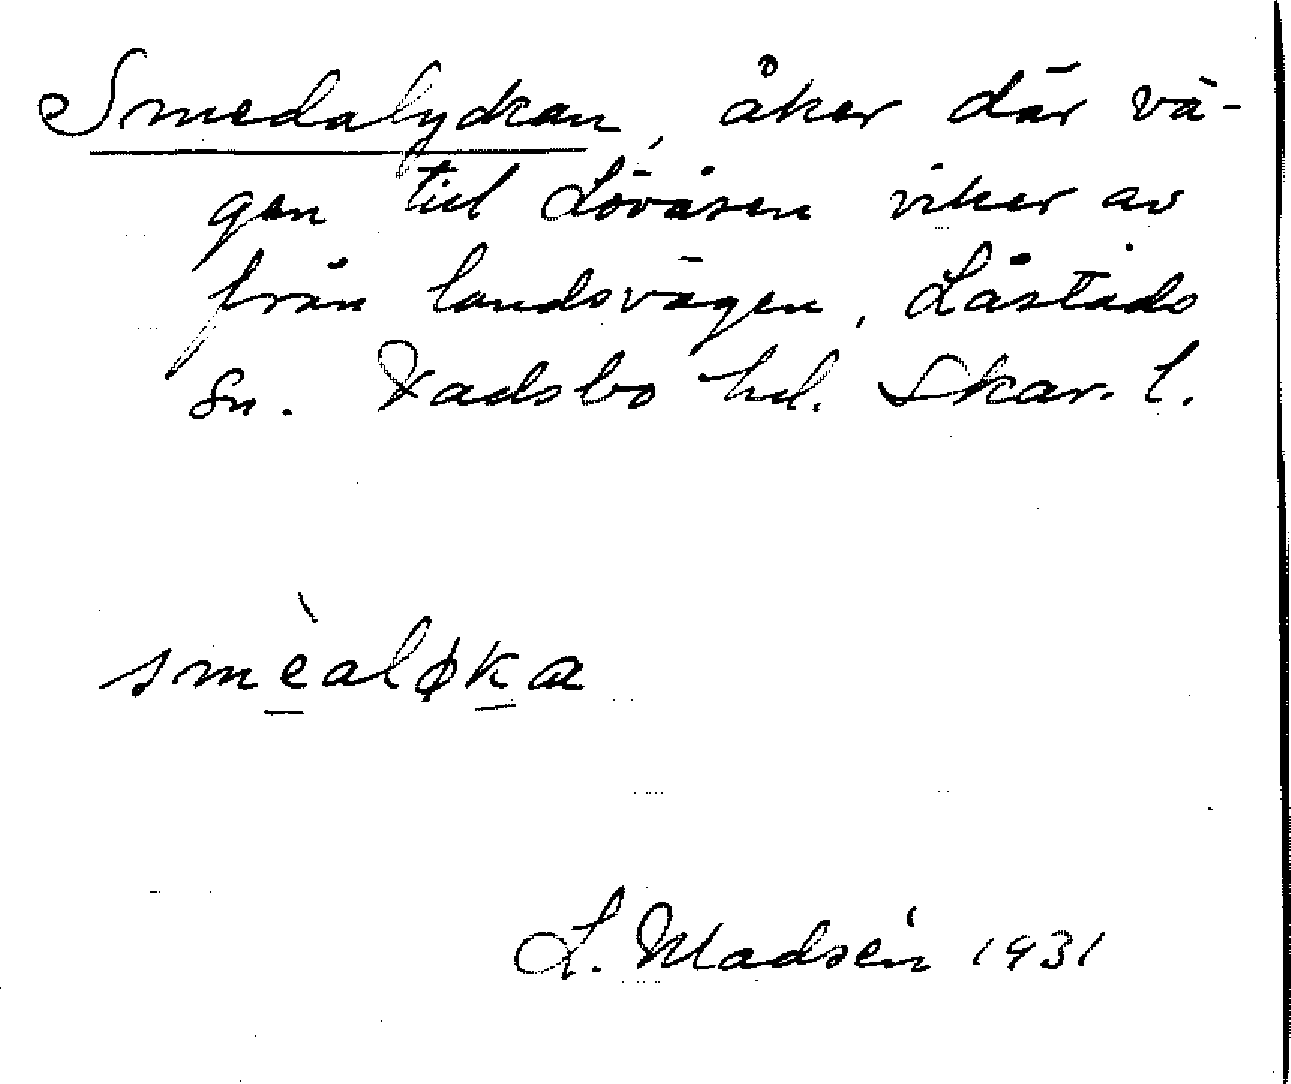 Smedalyckan, åker där vä-
gen till Lövåsen viker av
från landsvägen, Låstads
sn. Vadsbo hd. Skar. l.
smèaløka
L. Madsén 1931